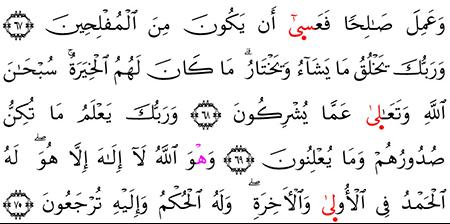 وَعَمِلَ صَٰلِحًا فَعَسىٰٓ أَن يَكُونَ مِنَ ٱلْمُفْلِحِينَ ٦٧
وَرَبُّكَ يَخْلُقُ مَا يَشَآءُ وَيَخْتَارُ ۗ مَا كَانَ لَهُمُ ٱلْخِيَرَةُ ۚ سُبْحَٰنَ
ٱللَّهِ وَتَعَٰلىٰ عَمَّا يُشْرِكُونَ ٦٨ وَرَبُّكَ يَعْلَمُ مَا تُكِنُّ
صُدُورُهُمْ وَمَا يُعْلِنُونَ ٦٩ وَهْوَ ٱللَّهُ لَآ إِلَٰهَ إِلَّا هُوَ ۖ لَهُ
ٱلْحَمْدُ فِي ٱلْأُولىٰ وَٱلْأٓخِرَةِ ۖ وَلَهُ ٱلْحُكْمُ وَإِلَيْهِ تُرْجَعُونَ ٧٠